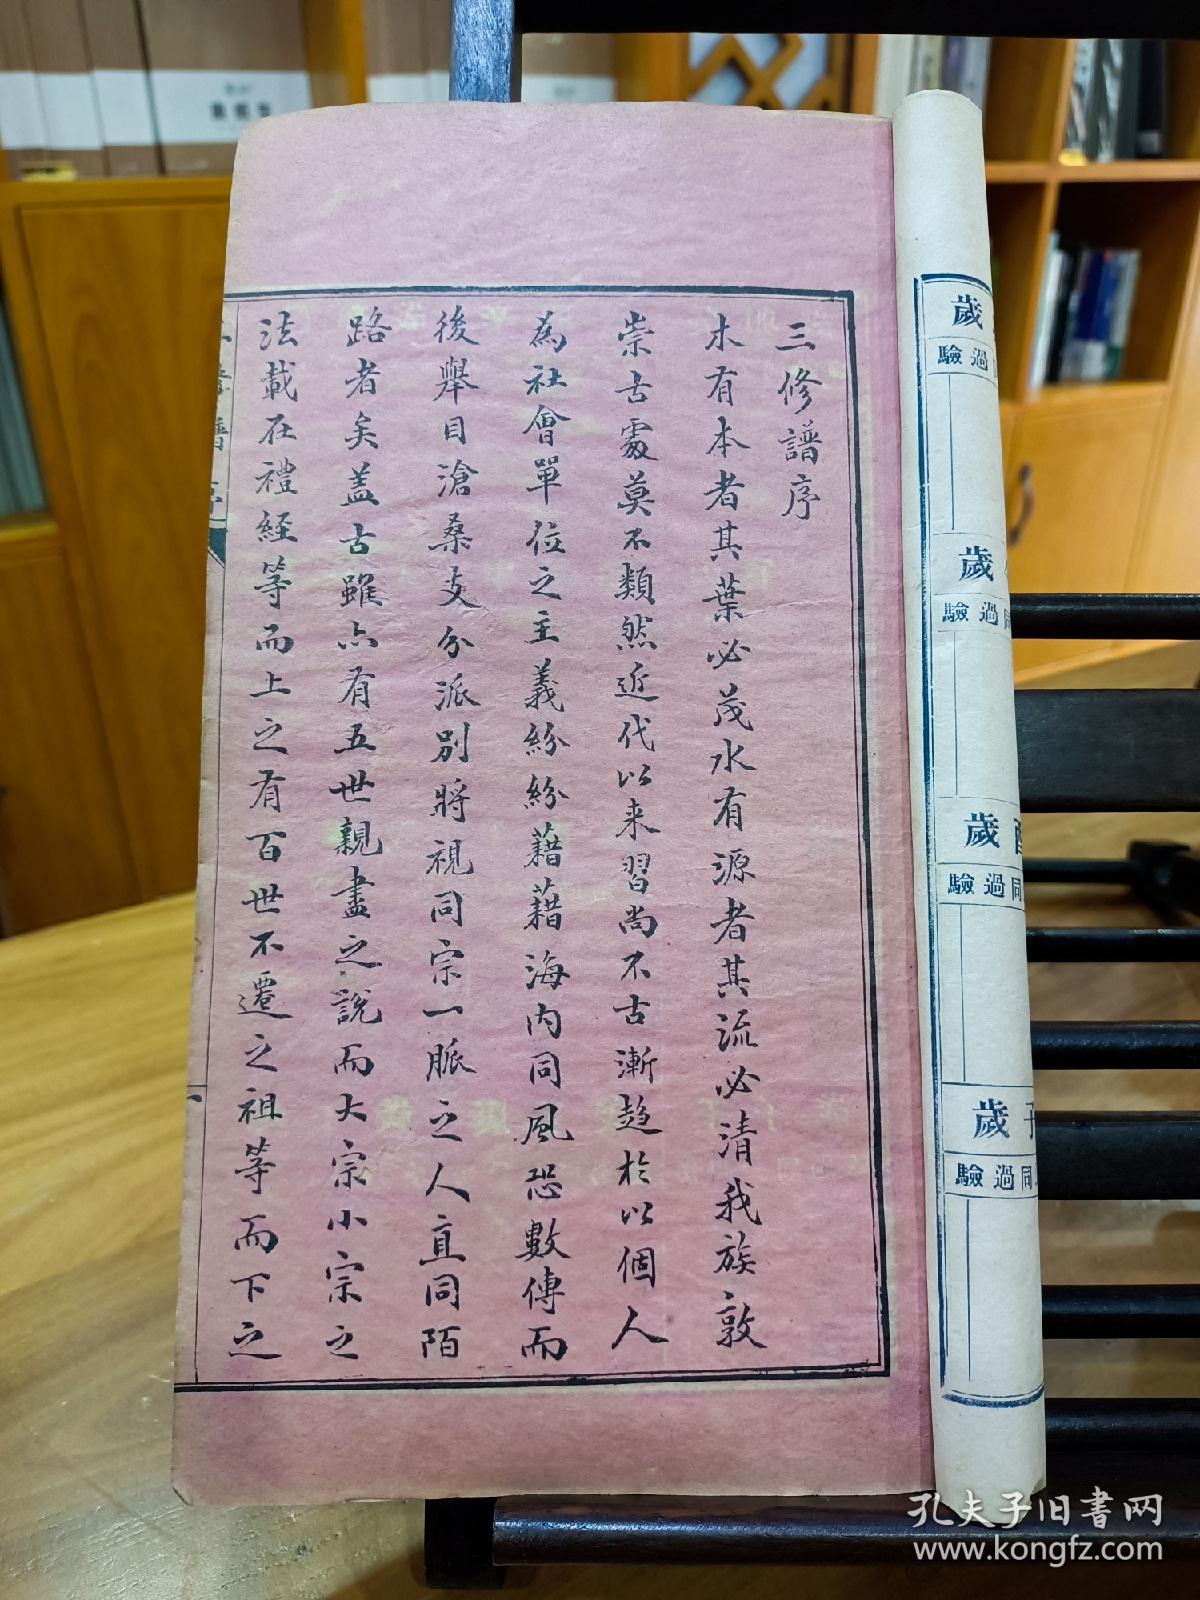 三修譜序
木有本者其葉必茂水有源者其流必清我族敦
崇古處莫不類然近代以来習尚不古漸趋於以個人
為社會單位之主義紛紛藉藉海内同風恐數傳而
後舉目滄桑支分派別將視同宗一脈之人直同陌
路者矣盖古雖亦有五世親盡之說而大宗小宗之
法載在禮經等而上之有百世不遷之祖等而下之
歲
同過驗
歲
同過驗
歲
同過驗
歲
同過驗
孔夫子旧書网
www.kongfz.com